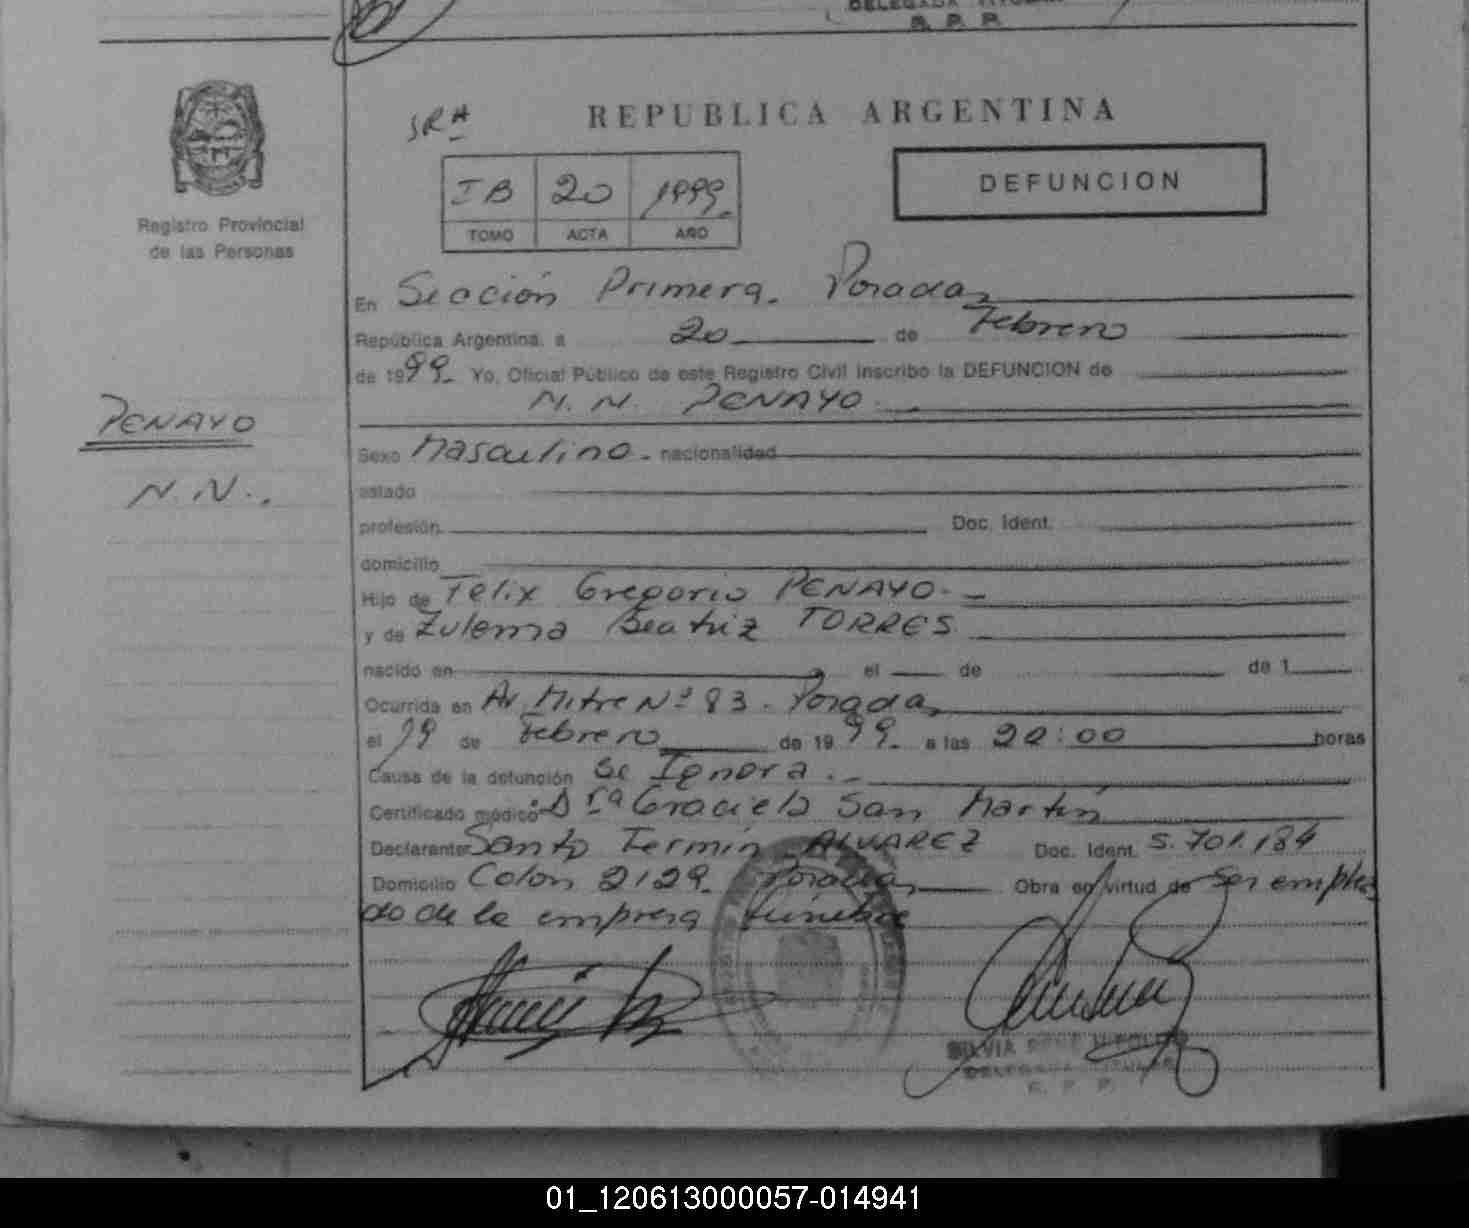 DELEGADA TITULAR
R. P. P.
SRA
REPUBLICA ARGENTINA
IB 20 1999
TOMO ACTA AÑO
DEFUNCION
Registro Provincial
de las Personas
En Sección Primera. Posadas
República Argentina, a 20 de Febrero
de 1999. Yo, Oficial Público de este Registro Civil inscribo la DEFUNCION de
N. N. PENAYO
PENAYO
N. N.
Sexo Masculino - nacionalidad
estado
profesión Doc. Ident.
domicilio
Hijo de Felix Gregorio PENAYO.-
y de Zulema Beatriz TORRES
nacido en el de de 1
Ocurrida en Av. Mitre Nº 93 - Posadas
el 19 de Febrero de 1999. a las 20:00 horas
Causa de la defunción Se Ignora.-
Certificado médico: Drª Graciela San Martín
Declarante Santo Fermín ALVAREZ Doc. Ident. 5.701.184
Domicilio Colon 2129. Posadas Obra en virtud de Ser emplea
do de la empresa fúnebre
SILVIA
DELEGADA TITULAR
R. P. P.
01_120613000057-014941